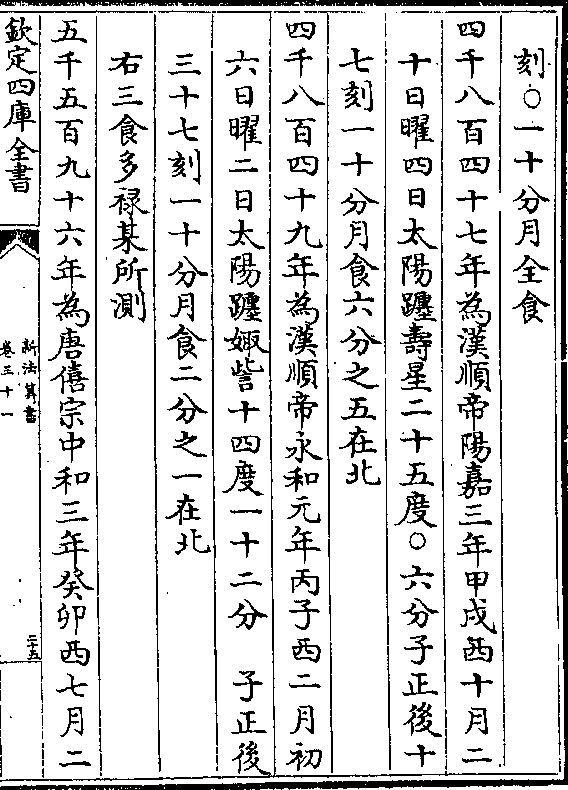 刻○一十分月全食
四千八百四十七年為漢順帝陽嘉三年甲戌西十月二
十日曜四日太陽躔壽星二十五度○六分子正後十
七刻一十分月食六分之五在北
四千八百四十九年為漢順帝永和元年丙子西二月初
六日曜二日太陽躔娵訾十四度一十二分　子正後
三十七刻一十分月食二分之一在北
右三食多禄某所測
五千五百九十六年為唐僖宗中和三年癸卯西七月二
欽定四庫全書
新法算書
卷三十一
二十五